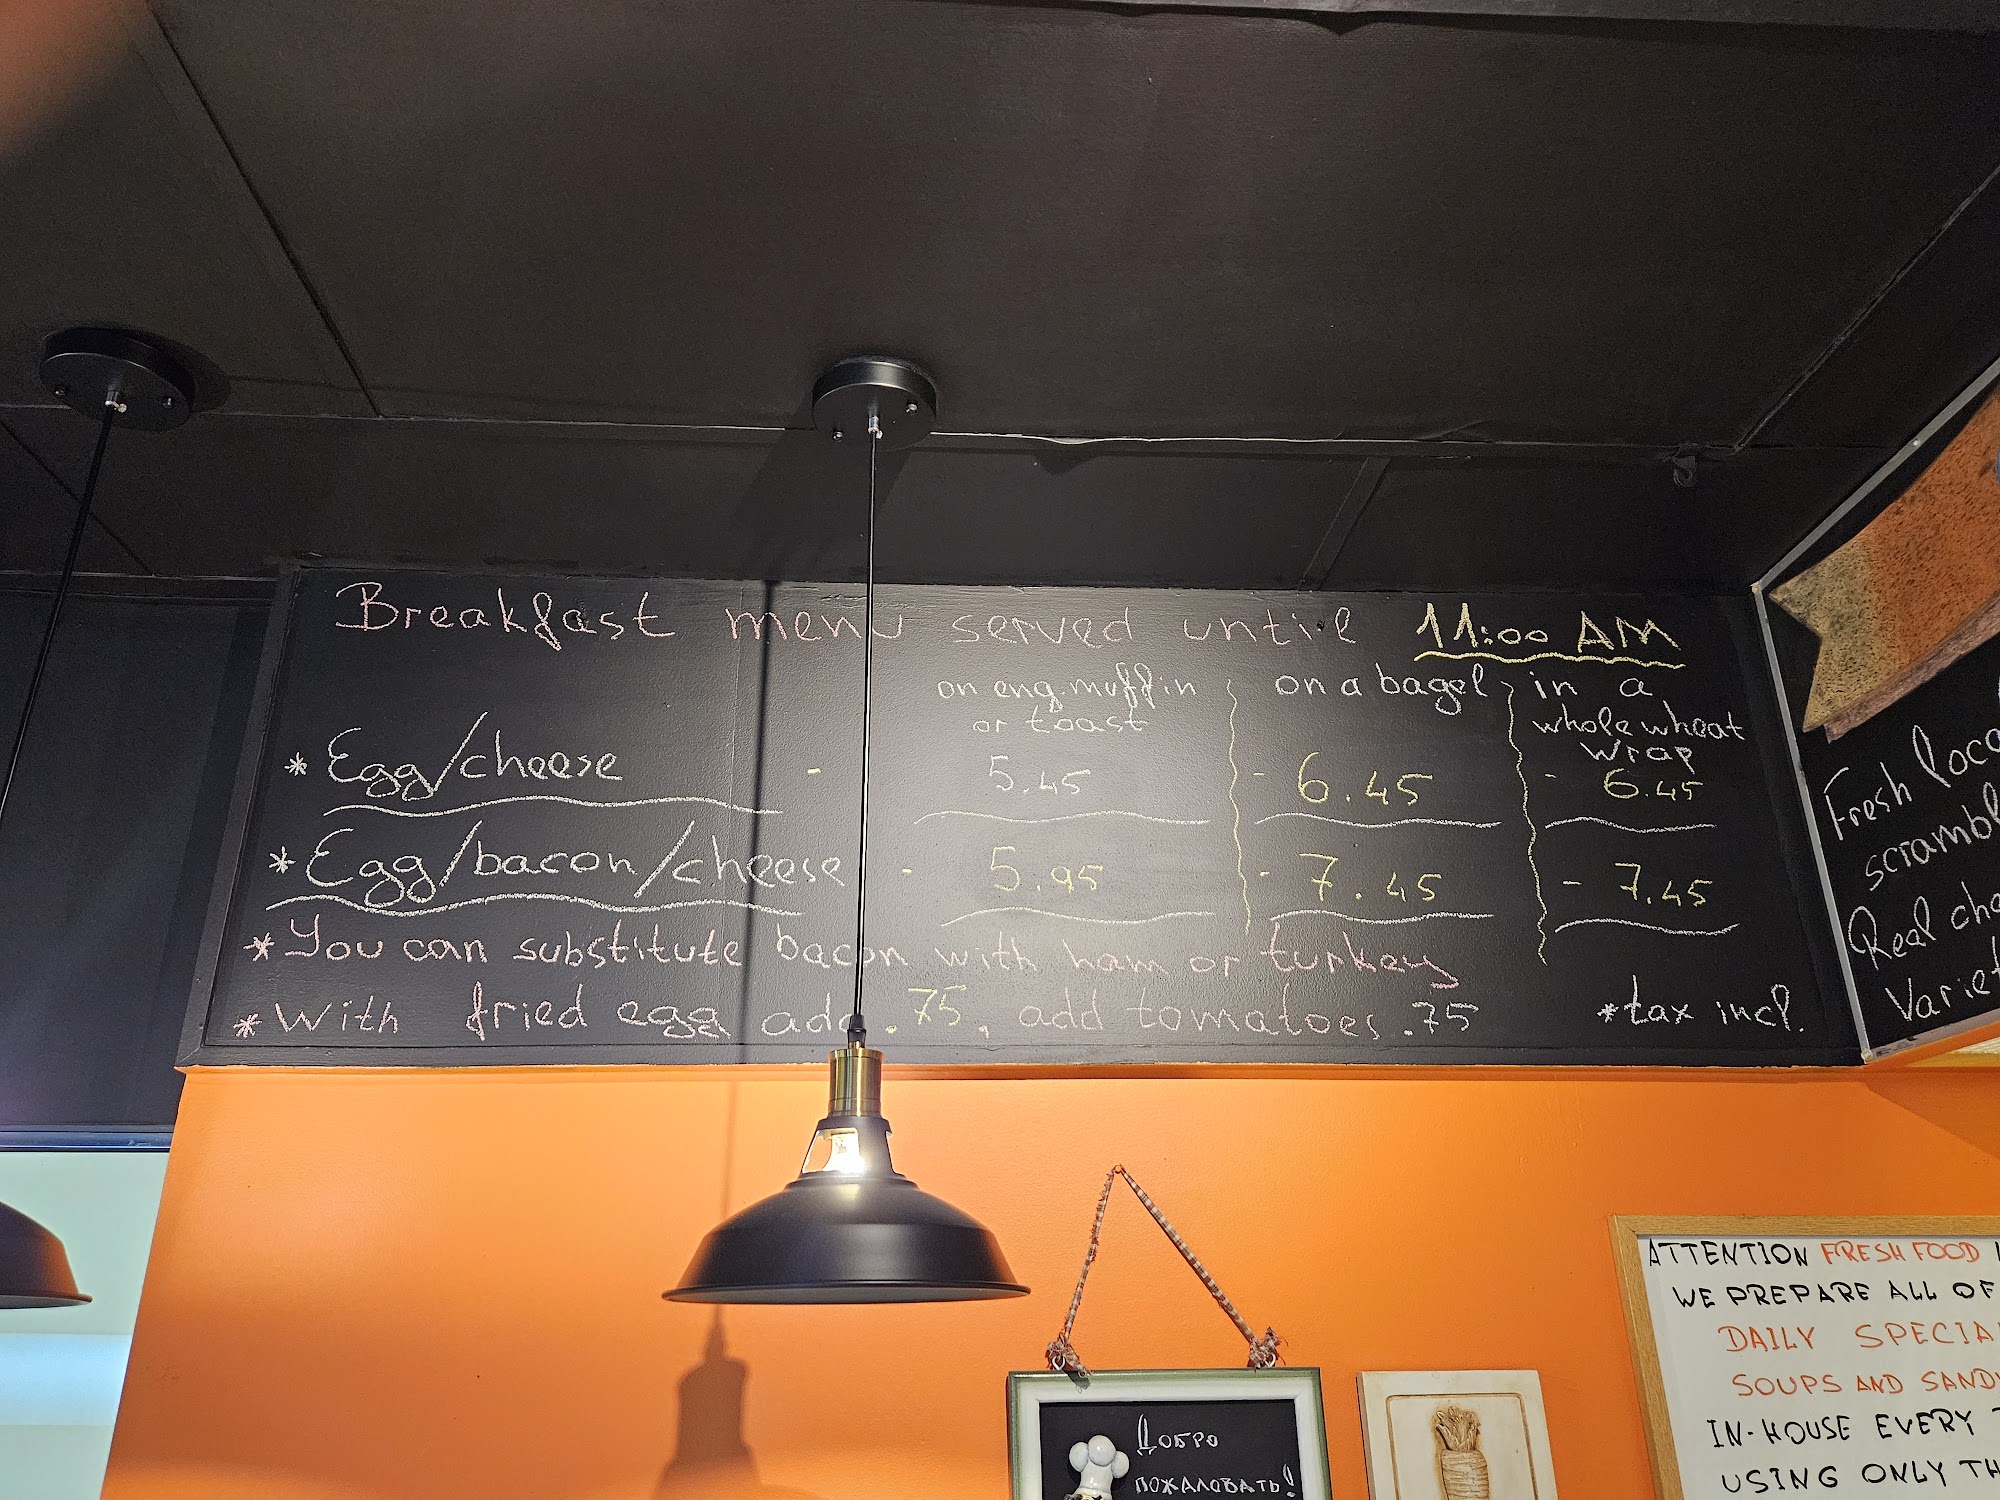 Breakfast menu served until 11:00 AM
on eng. muffin or toast
on a bagel
in a whole wheat wrap
* Egg/cheese - 5.45 - 6.45 - 6.45
* Egg/bacon/cheese - 5.95 - 7.45 - 7.45
* You can substitute bacon with ham or turkey
* With fried egg add .75, add tomatoes .75 *tax incl.
Fresh
Real
ATTENTION FRESH FOOD
WE PREPARE ALL OF
DAILY
SOUPS AND
IN-HOUSE EVERY
USING ONLY
Добро
пожаловать!